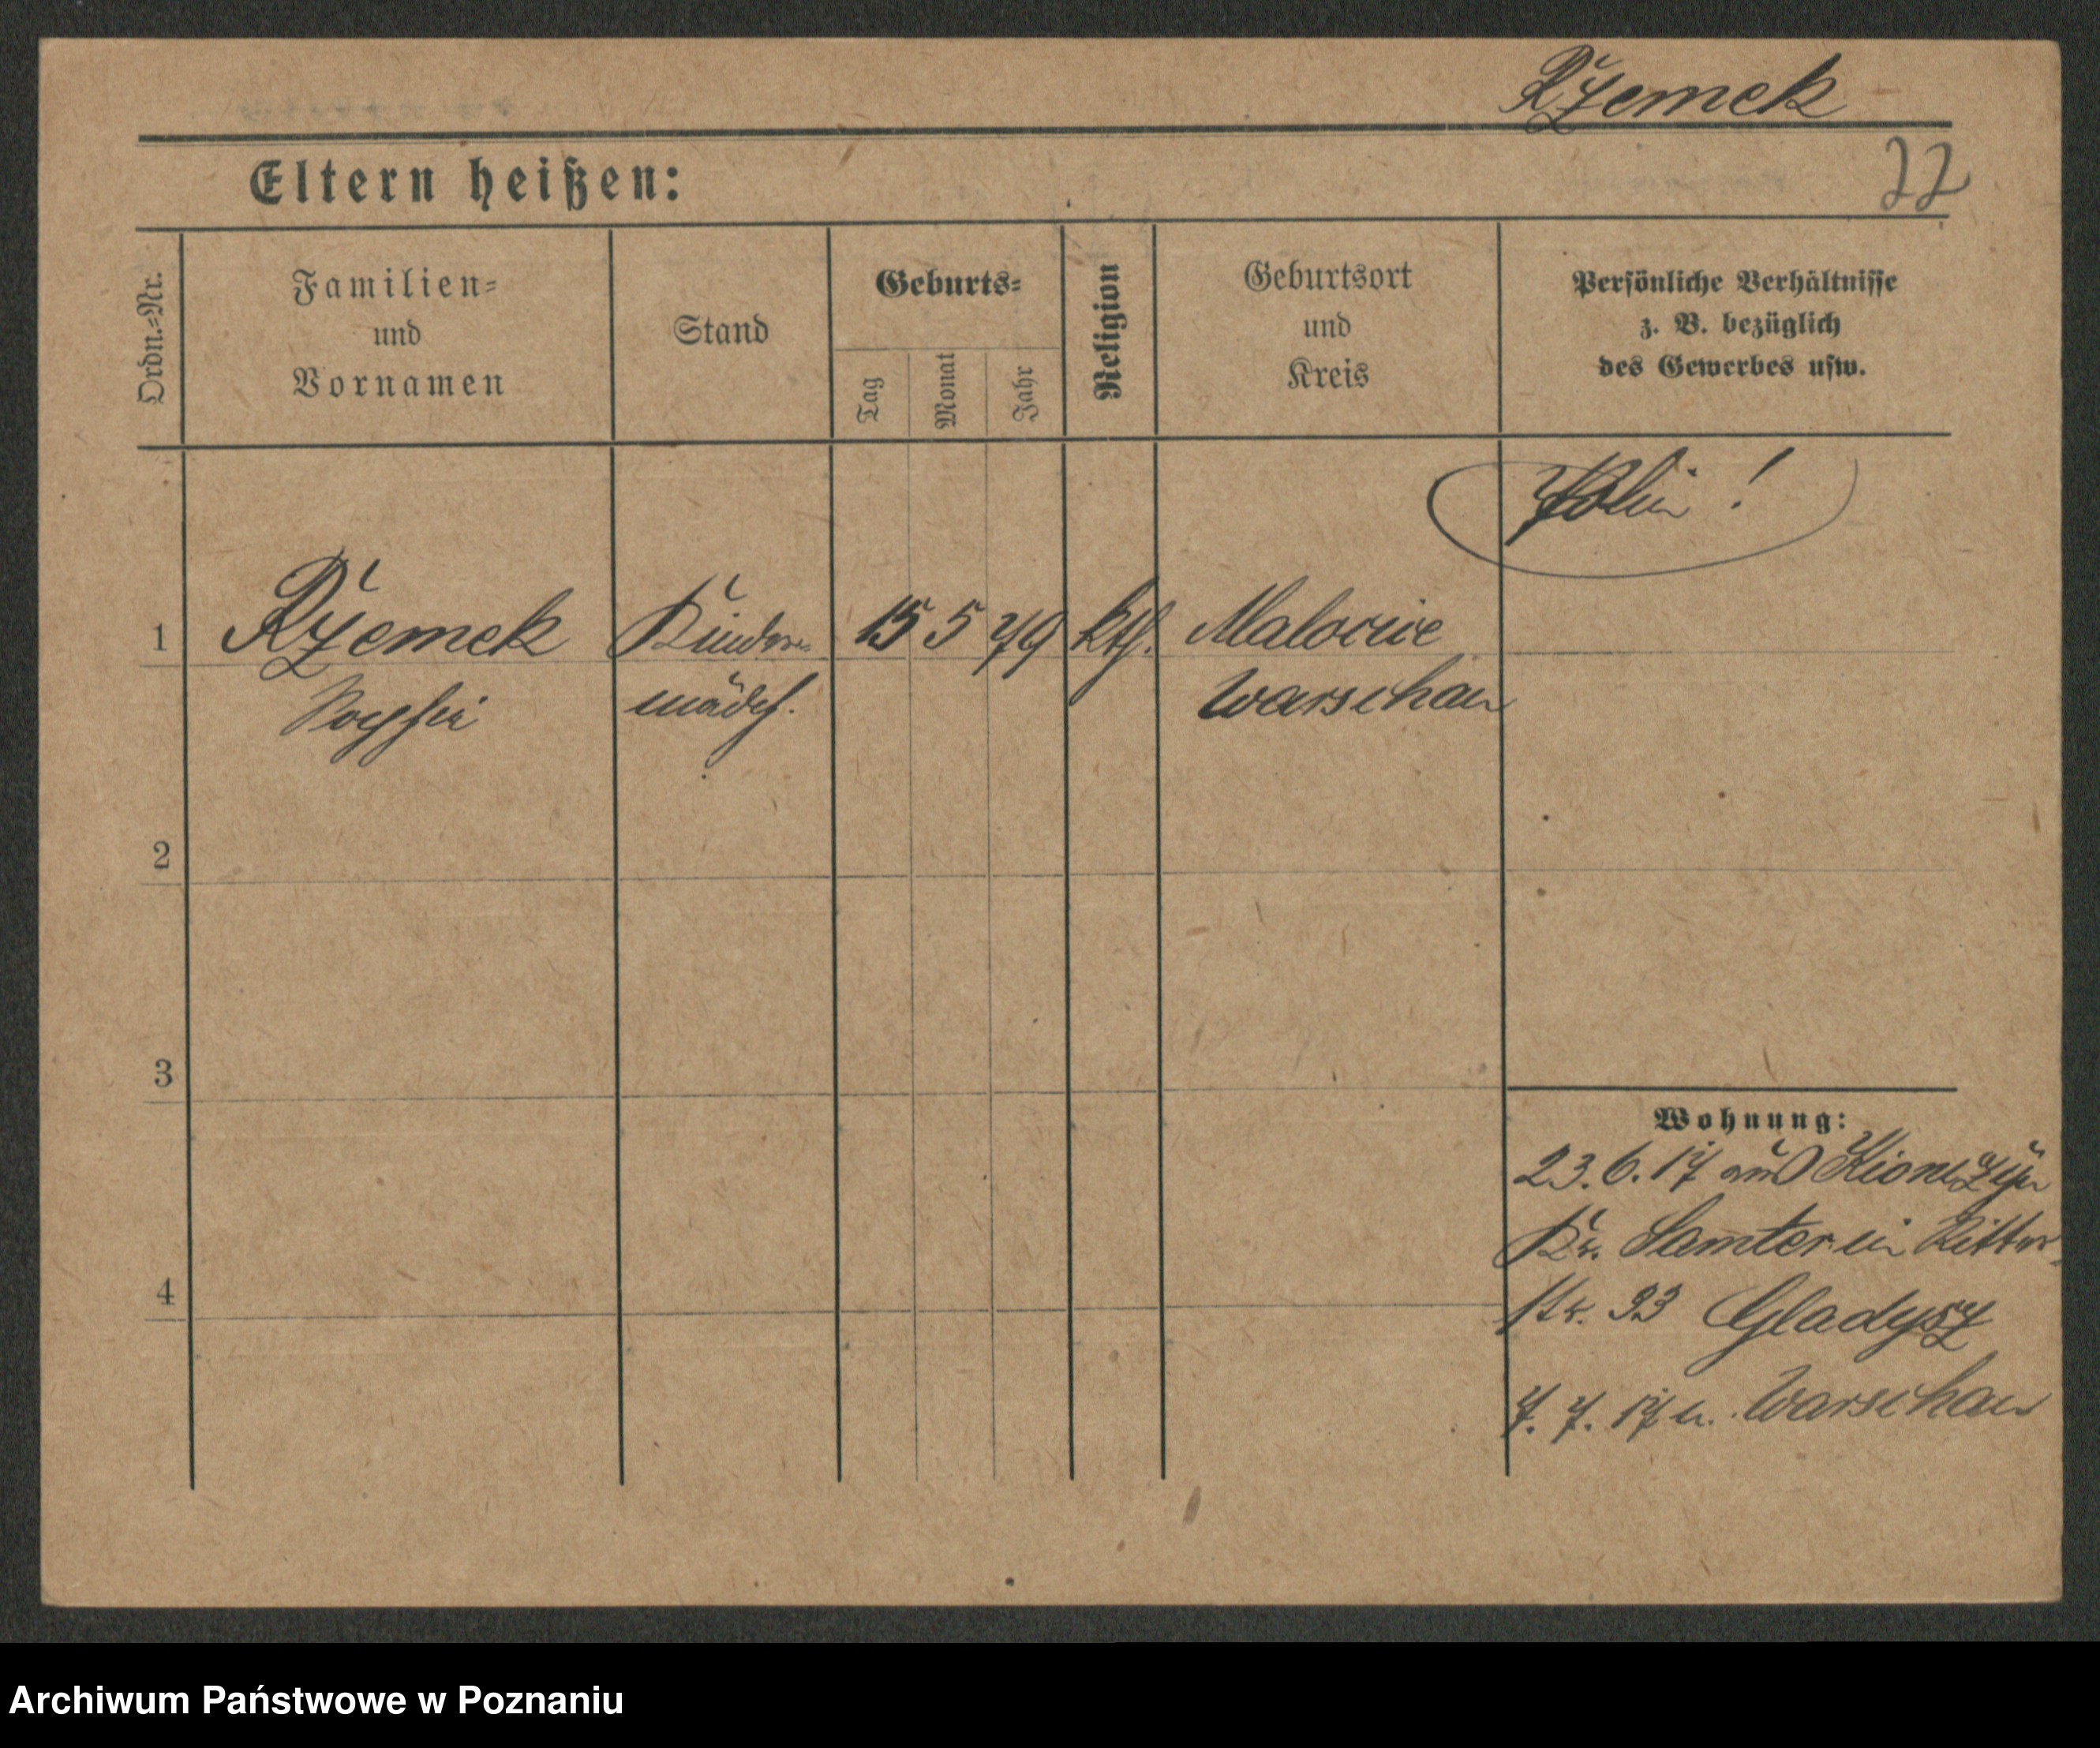 Rzemek
22
Eltern heißen:
Ordn.=Nr.
Familien=
und
Vornamen
Stand
Geburts=
Tag
Monat
Jahr
Religion
Geburtsort
und
Kreis
Persönliche Verhältnisse
z. B. bezüglich
des Gewerbes usw.
Polin !
1 Rzemek Kinder- 15 5 79 kth.
Sophie mädch. Warschau
2
3
4
Wohnung:
23.6.17 aus
Kr. Samter in Ritter-
str. 33 Gladysz
7. 7. 17 n. Warschau
Archiwum Państwowe w Poznaniu